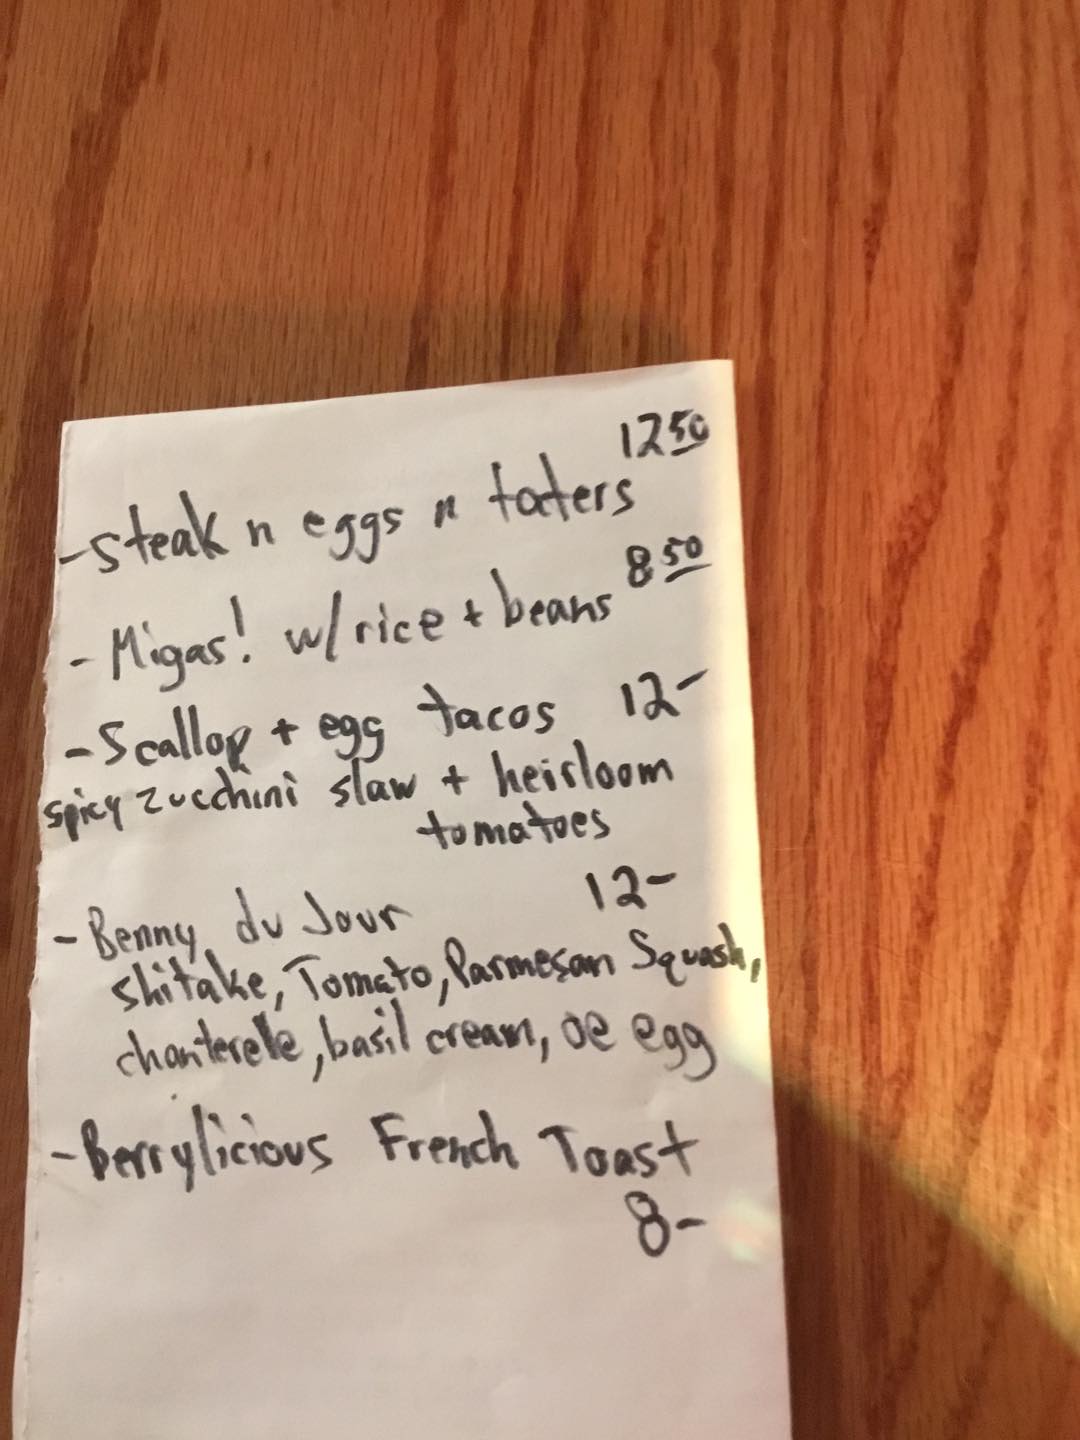 12 50
- Steak n eggs n taters
8 50
- Migas! w/ rice + beans
- Scallop + egg tacos 12-
spicy zucchini slaw + heirloom
tomatoes
- Benny du Jour 12-
shitake, Tomato, Parmesan Squash,
chanterelle, basil cream, oe egg
- Berrylicious French Toast
8-